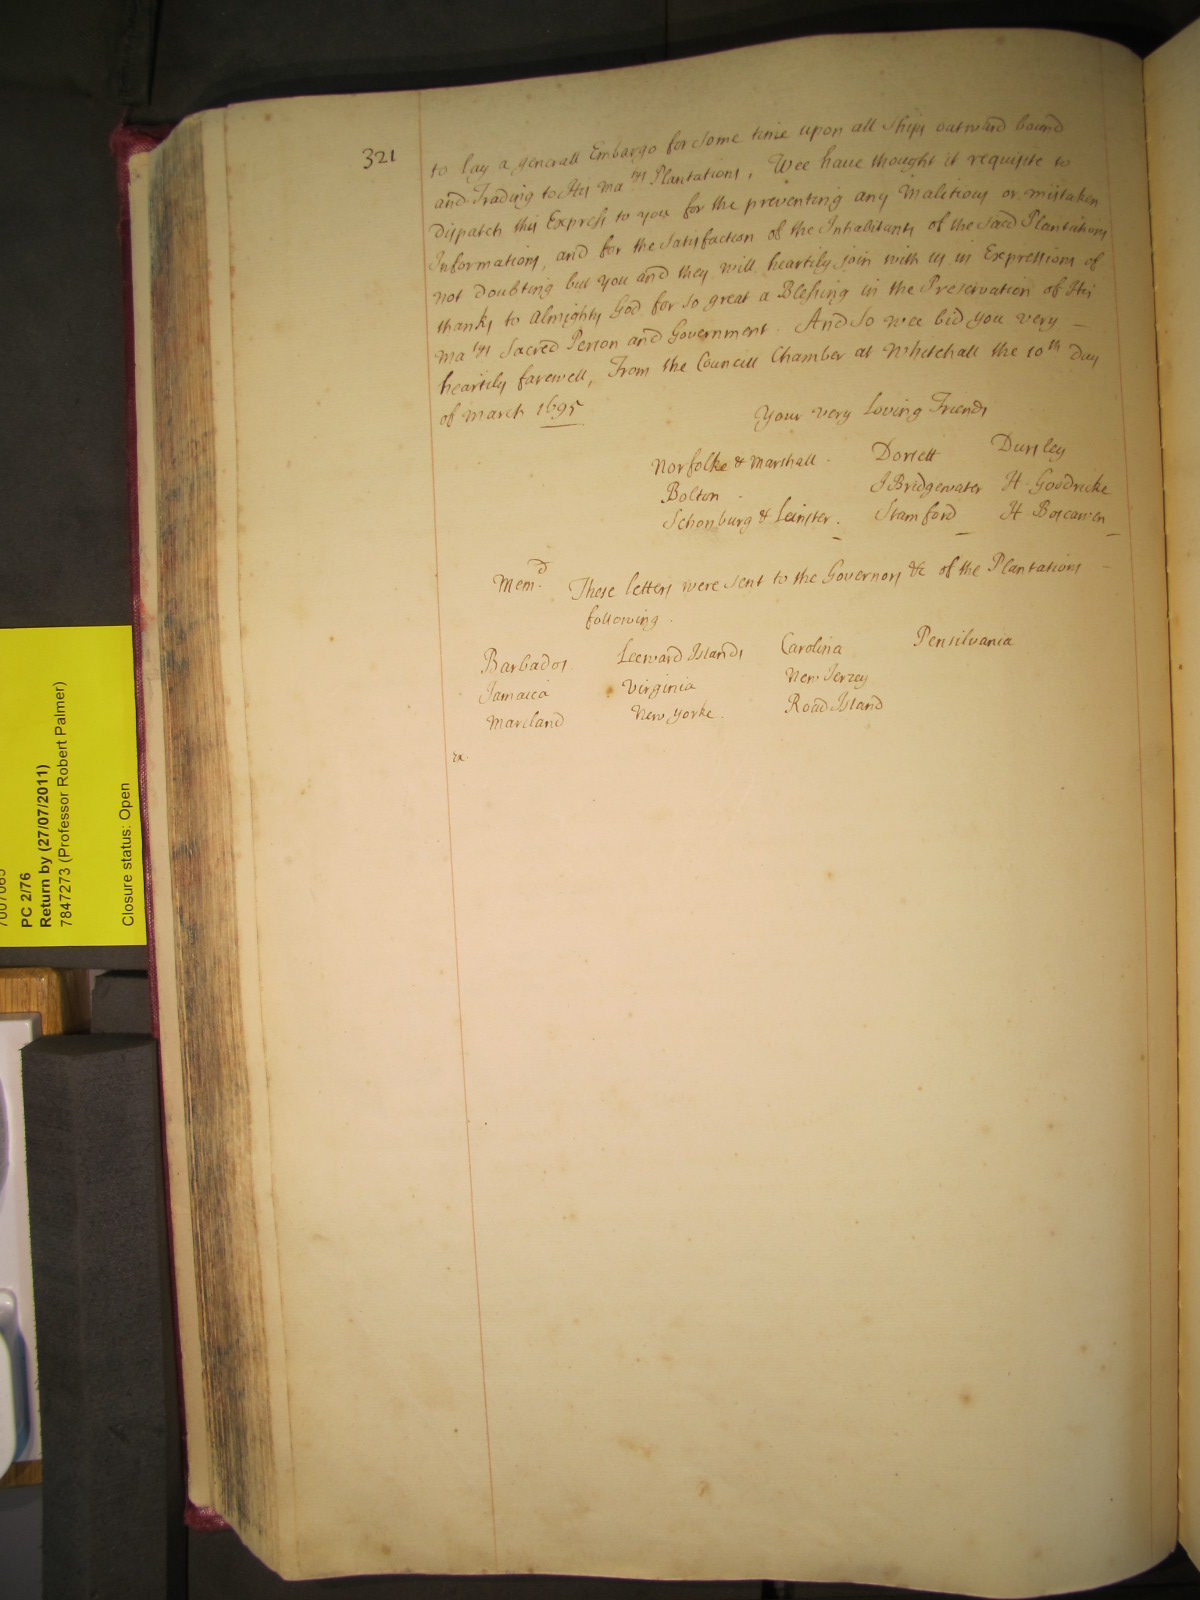 321
to lay a generall Embargo for some time upon all Ships outward bound
and Trading to His Ma^tys Plantations, Wee have thought it requisite to
Dispatch this Express to you for the preventing any Malitious or mistaken
Informations, and for the Satisfaction of the Inhabitants of the said Plantations
not Doubting but you and they will heartily join with us in Expressions of
thanks to Almighty God for so great a Blessing in the Preservation of His
Ma^tys Sacred Person and Government. And so wee bid you very –
heartily farewell, From the Councill Chamber at Whitehall the 10^th Day
of March 1695
Your very Loving Friends
Norfolke & Marshall. Dorsett Dursley
Bolton. J Bridgewater H. Goodricke
Schonburg & Leinster. Stamford H Boscawen
Mem^d. These letters were sent to the Governors &c of the Plantations –
following.
Barbados. Leeward Islands Carolina Pensilvania
Jamaica Virginia New Jerzey
Mariland New Yorke. Road Island
ex.
PC 2/76
Return by (27/07/2011)
7847273 (Professor Robert Palmer)
Closure status: Open